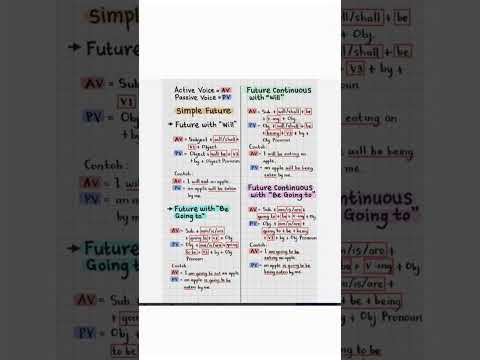 Simple Future
→ Future
AV = Sub
V1
PV = Ob
Contoh:
AV = I
PV = an
→ Future
Going to"
AV = Sub
+ going
PV = Ob
to be
Active Voice = AV
Passive Voice = PV
Simple Future
→ Future with "Will"
AV = Subject + will/shall
+ V1 + Object
PV = Object + will be + V3
+ by + Object Pronoun
Contoh:
AV = I will eat an apple.
PV = an apple will be eaten
by me.
→ Future with "Be
Going to"
AV = Sub + am/is/are +
going to + V1 + Obj
PV = Obj + am/is/are + going
to be + V3 + by + Obj
Pronoun
Contoh:
AV = I am going to eat an apple.
PV = an apple is going to be
eaten by me.
Future Continuous
with "Will"
AV = Sub + will/shall + be
+ V-ing + Obj.
PV = Obj + will/shall + be +
being + V3 + by + Obj
Pronoun
Contoh:
AV = I will be eating an
apple.
PV = an apple will be being
eaten by me.
Future Continuous
with "Be Going to"
AV = Sub + am/is/are +
going to + be + V-ing + Obj
PV = Obj + am/is/are +
going to + be + being
+ V3 + by + Obj Pronoun
Contoh:
AV = I am going to be
eating an apple.
PV = an apple is going to be
being eaten by me.
will/shall + be
+ Obj.
will/shall + be
V3 + by +
eating an
will be being
me.
Continuous
Going to"
am/is/are +
be + V-ing + Obj
am/is/are +
be + being
+ Obj Pronoun